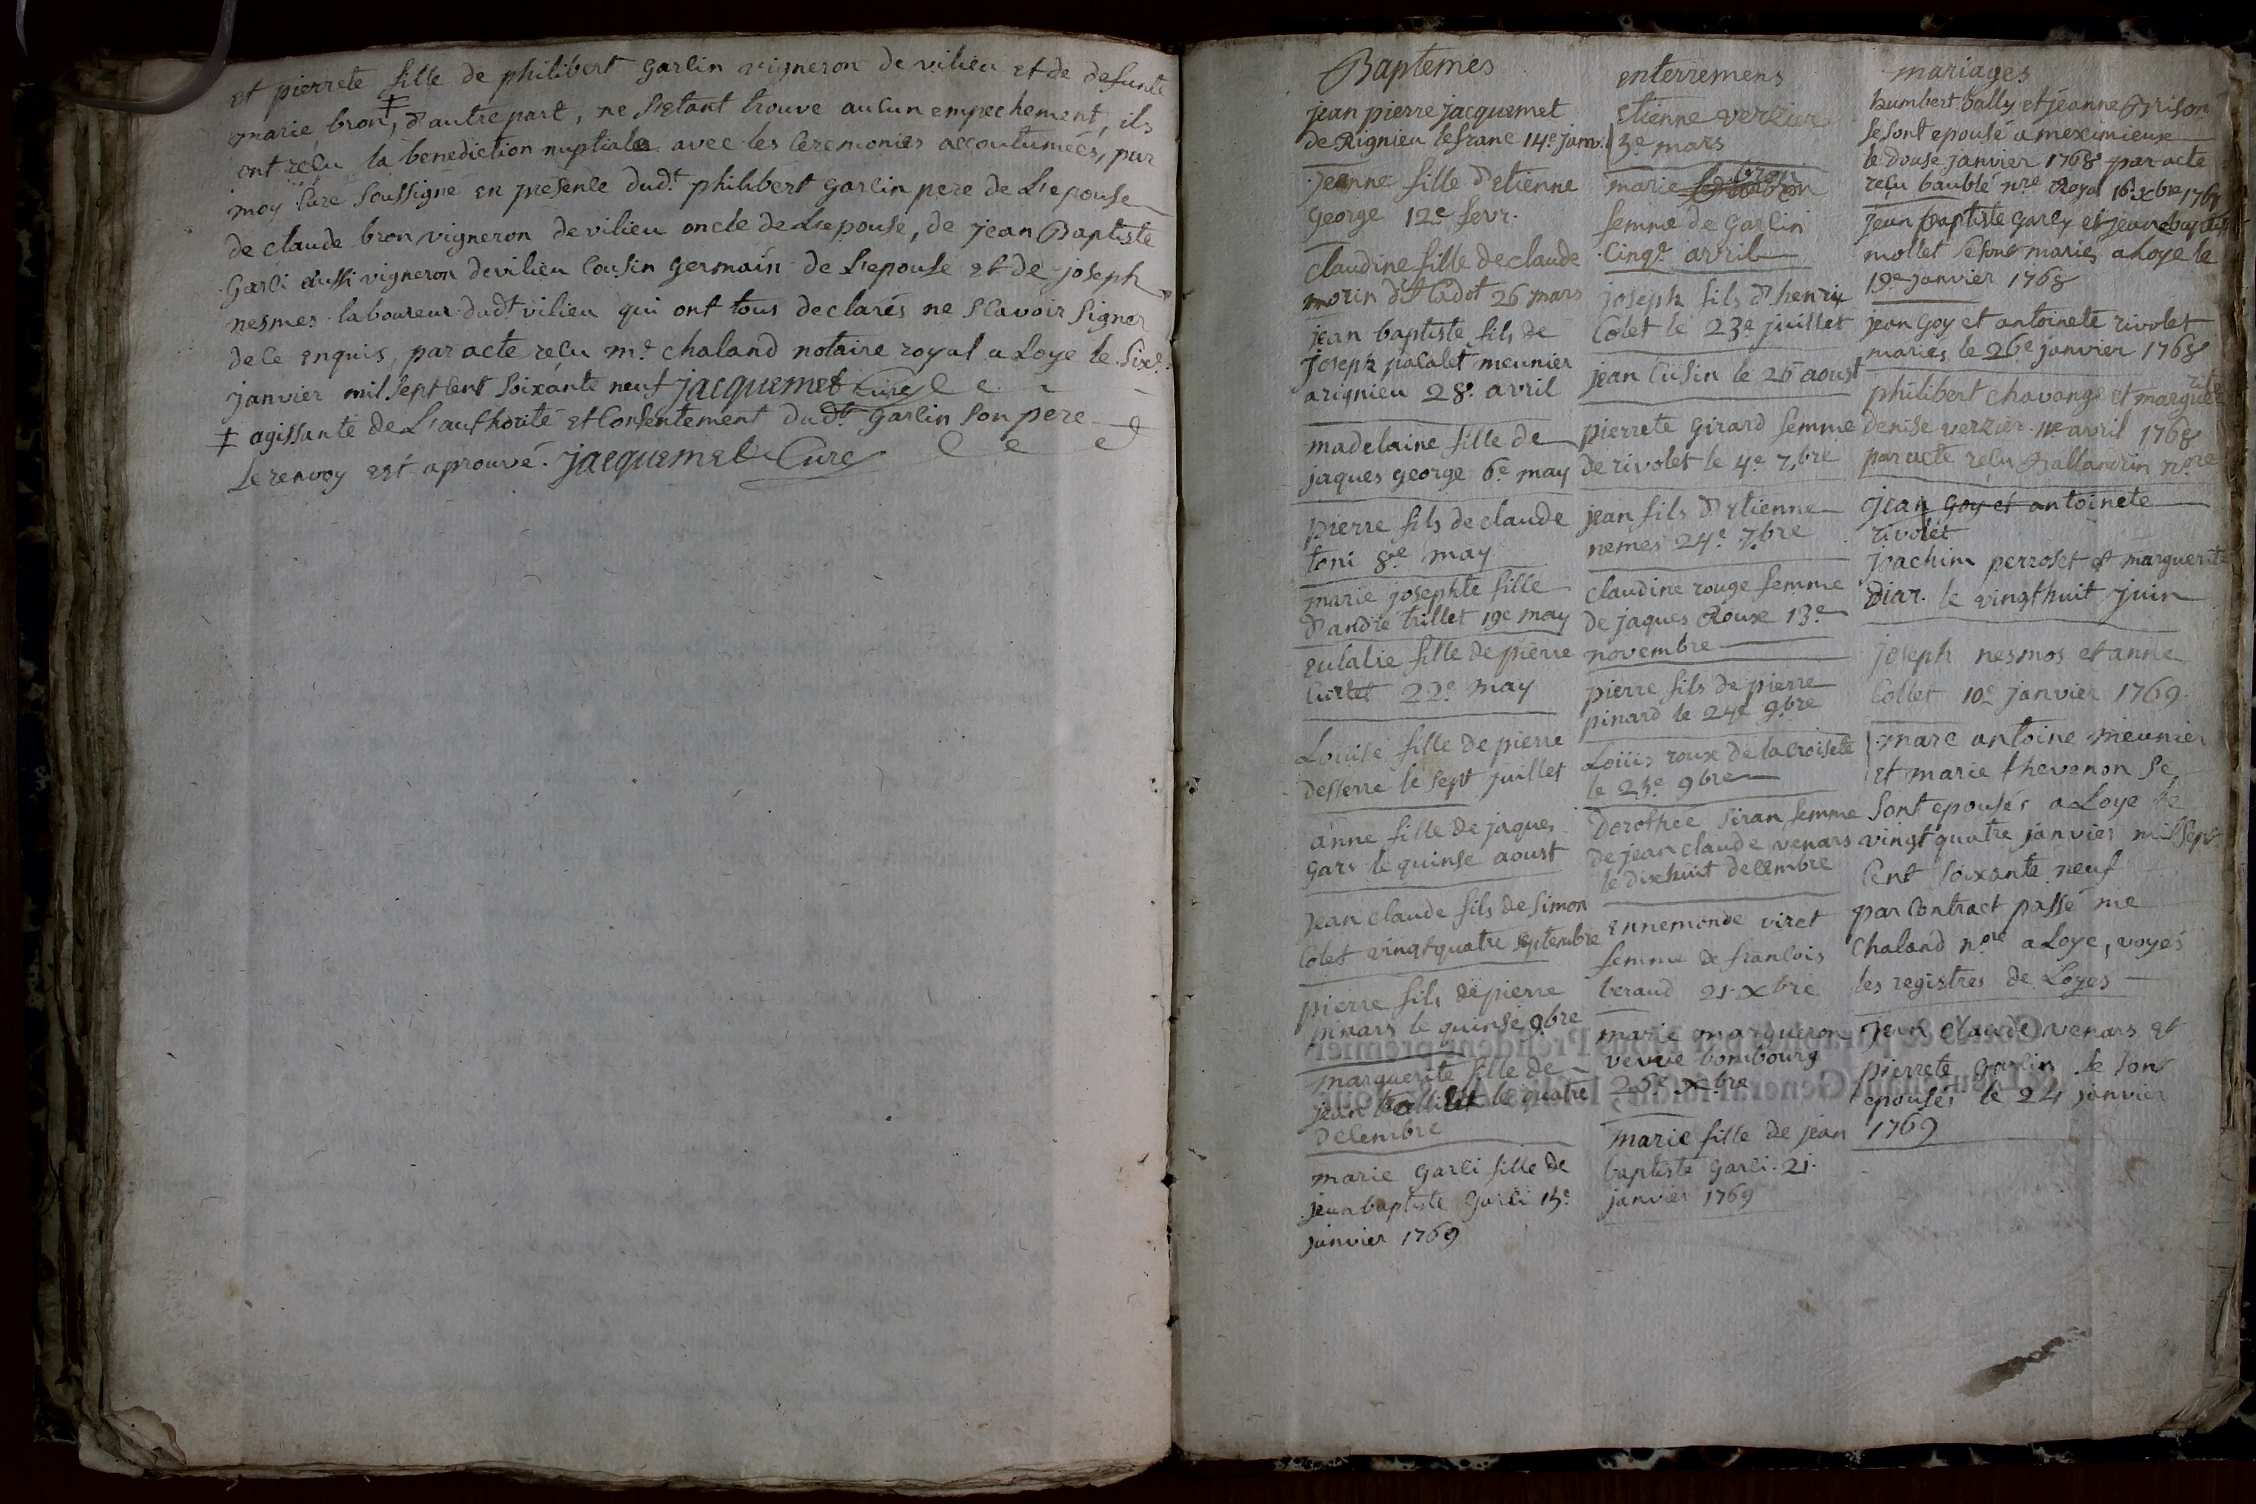 et pierrete fille de philibert garlin vigneron de vilieu et de defunte
marie bron ‡, d'autre part, ne s'etant trouvé aucun empechement, ils
ont reçu la benediction nuptiale avec les ceremonies accoutumées, par
moy curé soussigné en presence dudt philibert garlin pere de L'epouse
de claude bron vigneron de vilieu oncle de L'epouse, de jean Baptiste
garli aussi vigneron de vilieu cousin germain de L'epouse et de joseph
nesmes laboureur dudt vilieu qui ont tous declarés ne scavoir signer
de ce enquis, par acte reçu me chaland notaire royal a Loye le sixe
janvier mil sept cent soixante neuf jacquemet curé
‡ agissante de L'authorité et consentement dudt garlin son pere
Le renvoy est aprouvé. jacquemet Curé
Baptemes
jean pierre jacquemet
de Rignieu le franc 14e janv.
jeanne fille d'etienne
george 12e fevr.
claudine fille de claude
morin dt Cadot 26 mars
jean baptiste fils de
joseph pacalet meunier
a rignieu 28e avril
madelaine fille de
jaques george 6e may
pierre fils de claude
toni 8e may
marie josephte fille
d'andré trillet 19e may
eulalie fille de pierre
Curtet 22e may
Louise fille de pierre
desserre le sept juillet
anne fille de jaques
gars le quinse aoust
jean claude fils de simon
Colet vingt quatre septembre
pierre fils de pierre
pinars le quinse 9bre
marguerite fille de
jean le quatre
decembre
marie garli fille de
jean baptiste garli 13e
janvier 1769
enterremens
Etienne verzier
3e mars
marie bron
femme de garlin
cinqe avril
joseph fils d'henrix
Colet le 23e juillet
jean Cusin le 26 aoust
pierrete girard femme
de rivolet le 4e 7bre
jean fils d'etienne
nemes 24e 7bre
claudine rouge femme
de jaques Roux 13e
novembre
pierre fils de pierre
pinard le 24e 9bre
Loüis roux de la croisete
le 25e 9bre
Dorothée siran femme
de jean claude venars
le dixhuit decembre
ennemonde viret
femme de francois
beraud 21 xbre
marie margueron
veuve bombourg
26e xbre
marie fille de jean
baptiste garli 21
janvier 1769
mariages
humbert Bally et jeanne Brison
se sont epousé a meximieux
le douse janvier 1768 par acte
reçu baublé nre Royal 16 xbre 1767
jean baptiste garly et jeane baptiste
mollet se sont mariés a Loye le
19e janvier 1768
jean goy et antoinete rivolet
mariés le 26e janvier 1768
philibert chavange et marguerite
denise verzier 11e avril 1768
par acte reçu Ballandrin nore
jean goy et antoinete
rivolet
joachim perroset et marguerite
Diar. le vingthuit juin
joseph nesmos et anne
Collet 10e janvier 1769
marc antoine meunier
et marie thevenon se
sont epousés a Loye le
vingt quatre janvier mil sept
cent soixante neuf
par contract passé me
chaland nore a Loye, voyés
les registres de Loyes
jean claude venars et
pierrete garlin se sont
epousés le 24 janvier
1769